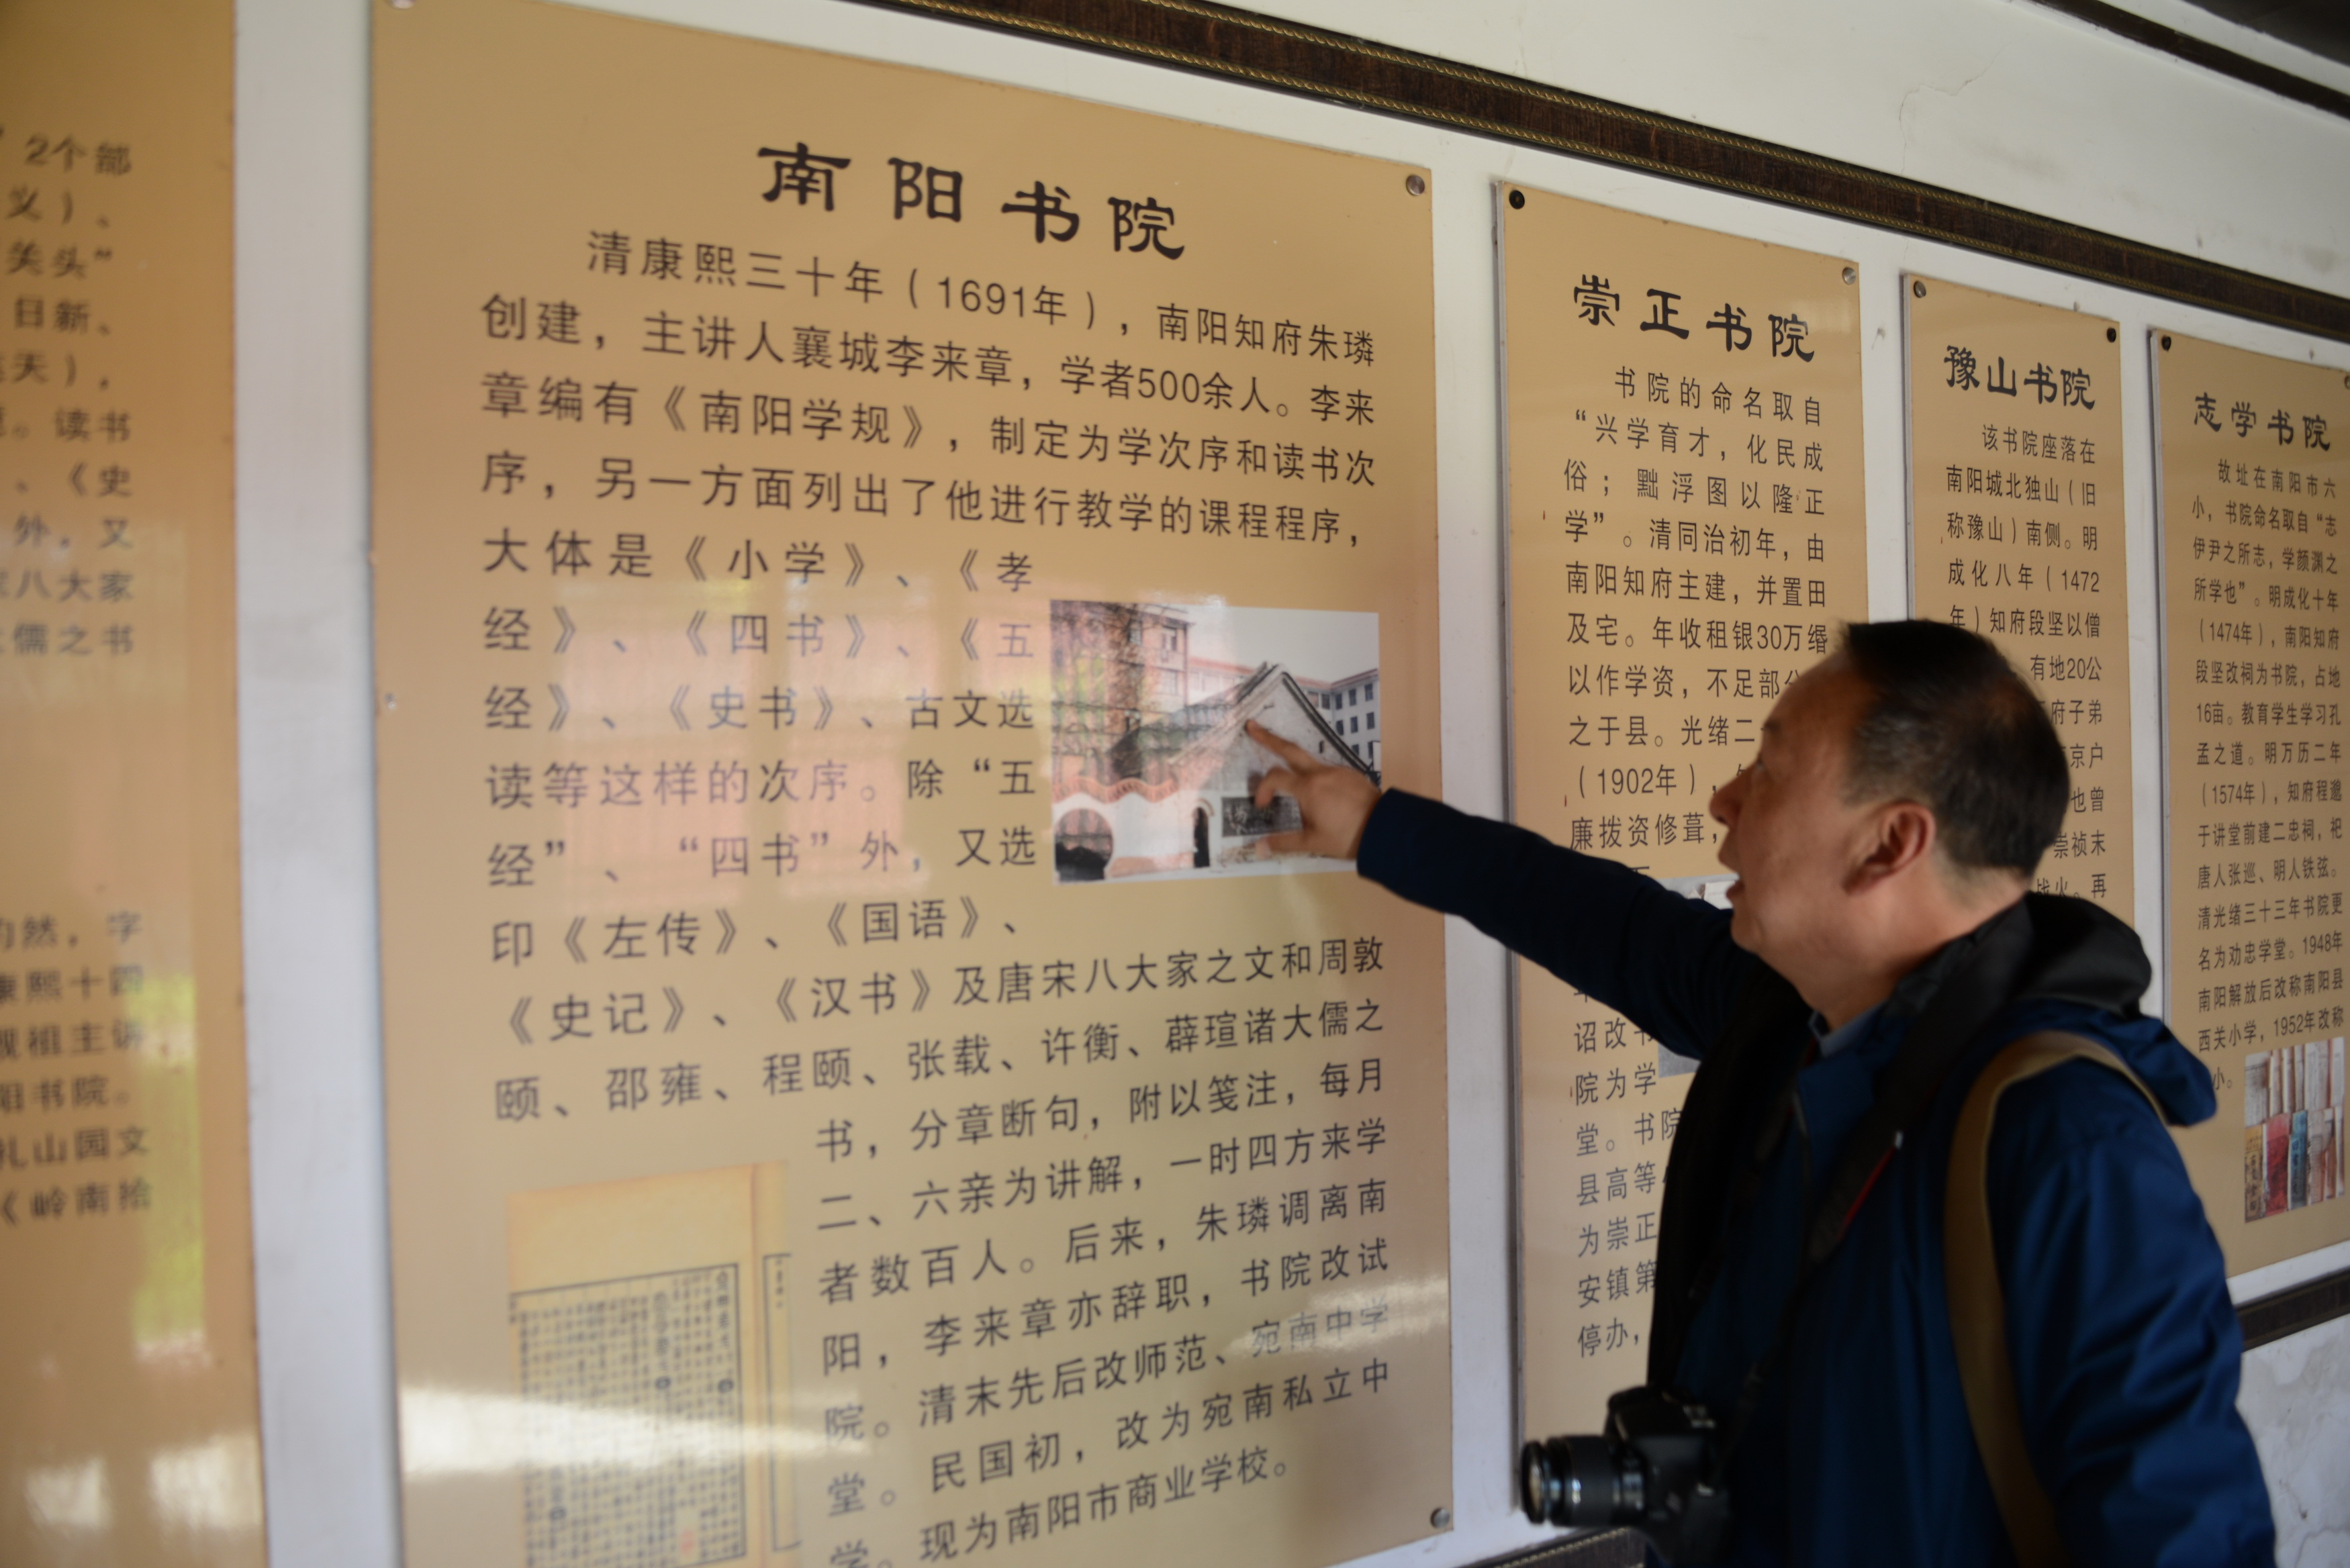 2个部
义）、
关头”
日新、
天），
。读书
、《史
外，又
八大家
儒之书
然，字
康熙十四
祖主讲
阳书院。
礼山园文
《岭南拾
南阳书院
清康熙三十年（1691年），南阳知府朱璘
创建，主讲人襄城李来章，学者500余人。李来
章编有《南阳学规》，制定为学次序和读书次
序，另一方面列出了他进行教学的课程程序，
大体是《小学》、《孝
经》、《四书》、《五
经》、《史书》、古文选
读等这样的次序。除“五
经”、“四书”外，又选
印《左传》、《国语》、
《史记》、《汉书》及唐宋八大家之文和周敦
颐、邵雍、程颐、张载、许衡、薜瑄诸大儒之
书，分章断句，附以笺注，每月
二、六亲为讲解，一时四方来学
者数百人。后来，朱璘调离南
阳，李来章亦辞职，书院改试
院。清末先后改师范、宛南中学
堂。民国初，改为宛南私立中
学。现为南阳市商业学校。
崇正书院
书院的命名取自
“兴学育才，化民成
俗；黜浮图以隆正
学”。清同治初年，由
南阳知府主建，并置田
及宅。年收租银30万缗
以作学资，不足部分
之于县。光绪二
（1902年），
廉拨资修葺，
诏改书
院为学
堂。书院
县高等
为崇正
安镇第
停办，
豫山书院
该书院座落在
南阳城北独山（旧
称豫山）南侧。明
成化八年（1472
年）知府段坚以僧
有地20公
府子弟
京户
也曾
崇祯末
战火。再
志学书院
故址在南阳市六
小，书院命名取自“志
伊尹之所志，学颜渊之
所学也”。明成化十年
（1474年），南阳知府
段坚改祠为书院，占地
16亩。教育学生学习孔
孟之道。明万历二年
（1574年），知府程邈
于讲堂前建二忠祠，祀
唐人张巡、明人铁弦。
清光绪三十三年书院更
名为劝忠学堂。1948年
南阳解放后改称南阳县
西关小学，1952年改称
小。